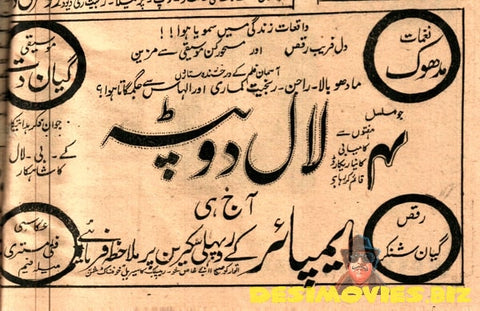 نغمات
مدھوک
واقعات زندگی میں سمویا ہوا!!!
دل فریب رقص اور مسحورکن موسیقی سے مزین
آسمان فلم کے درخشندہ ستاروں
مادھو بالا۔ راجن۔ رنجیت کماری اور الہاس سے جگمگاتا ہوا؟
موسیقی
گیان دت
جو مسلسل
۴ ہفتوں سے
کامیابی
کا نیا ریکارڈ
قائم کر رہا ہے
لال دوپٹہ
کے۔ بی۔ لال
کا شاہکار
آج ہی
ایمپائر کے روپہلی سکرین پر ملاحظہ فرمائیے
رقص
گیان شنکر
عکاسی
DESIMOVIES.BIZ